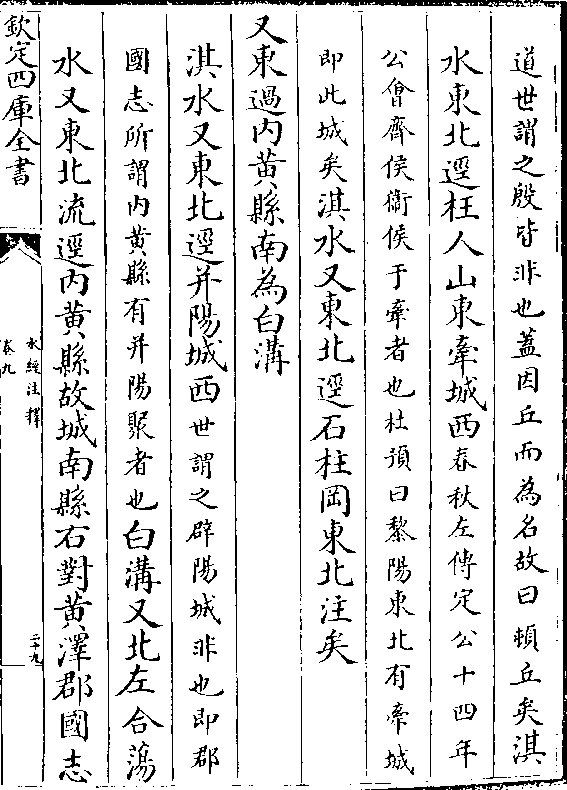 道世謂之殷皆非也蓋因丘而為名故曰頓丘矣淇
水東北逕枉人山東牽城西春秋左傳定公十四年
公㑹齊侯衞侯于牽者也杜預曰黎陽東北有牽城
即此城矣淇水又東北逕石柱岡東北注矣
又東過内黄縣南為白溝
淇水又東北逕并陽城西世謂之辟陽城非也即郡
國志所謂内黄縣有并陽聚者也白溝又北左合蕩
水又東北流逕内黄縣故城南縣右對黄澤郡國志
欽定四庫全書
水經注釋
卷九
二十九